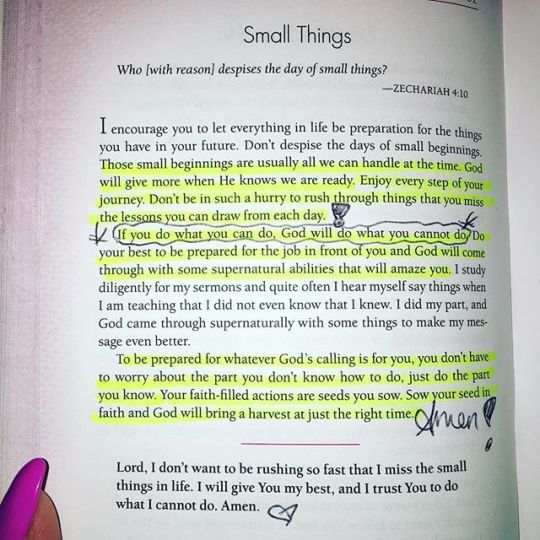 Small Things
Who [with reason] despises the day of small things?
—ZECHARIAH 4:10
I encourage you to let everything in life be preparation for the things
you have in your future. Don't despise the days of small beginnings.
Those small beginnings are usually all we can handle at the time. God
will give more when He knows we are ready. Enjoy every step of your
journey. Don't be in such a hurry to rush through things that you miss
the lessons you can draw from each day.
If you do what you can do, God will do what you cannot do. Do
your best to be prepared for the job in front of you and God will come
through with some supernatural abilities that will amaze you. I study
diligently for my sermons and quite often I hear myself say things when
I am teaching that I did not even know that I knew. I did my part, and
God came through supernaturally with some things to make my mes-
sage even better.
To be prepared for whatever God's calling is for you, you don't have
to worry about the part you don't know how to do, just do the part
you know. Your faith-filled actions are seeds you sow. Sow your seed in
faith and God will bring a harvest at just the right time. Amen!
Lord, I don't want to be rushing so fast that I miss the small
things in life. I will give You my best, and I trust You to do
what I cannot do. Amen.